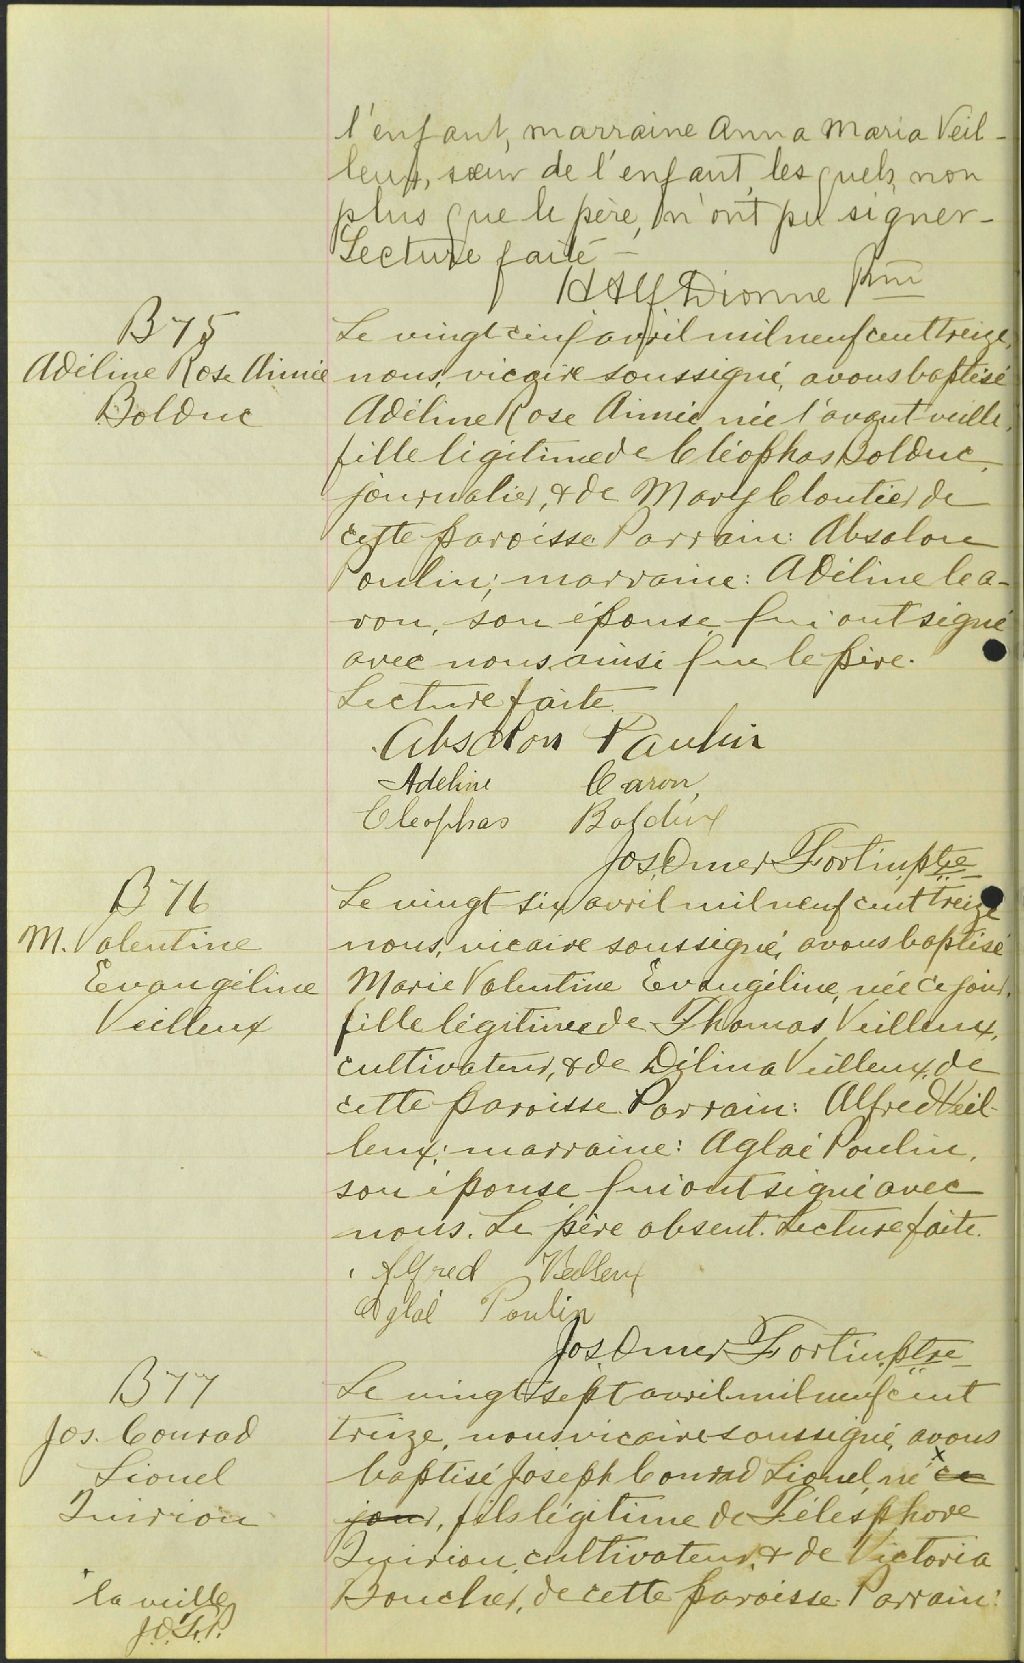 l'enfant, marraine Anna Maria Veil-
leux, sœur de l'enfant, les quels, non
plus que le père, n'ont pu signer-
Lecture faite -
H A Dionne Ptre
B 75
Adéline Rose Aimée
Bolduc
Le vingt cinq avril mil neuf cent treize,
nous, vicaire soussigné, avons baptisé
Adéline Rose Aimée, née l'avant veille,
fille légitime de Cléophas Bolduc,
journalier, & de Mary Cloutier de
cette paroisse. Parrain: Absolon
Poulin; marraine: Adéline Ca-
ron, son épouse qui ont signé
avec nous ainsi que le père.
Lecture faite.
Absolon Paulin
Adeline Caron,
Cleophas Bolduc
Jos. Omer Fortin, ptre
B 76
M. Valentine
Evangéline
Veilleux
Le vingt six avril mil neuf cent treize
nous, vicaire soussigné, avons baptisé
Marie Valentine Evangéline, née ce jour,
fille légitime de Thomas Veilleux,
cultivateur, & de Délina Veilleux, de
cette paroisse. Parrain: Alfred Veil-
leux; marraine: Aglaé Poulin,
son épouse qui ont signé avec
nous. Le père absent. Lecture faite.
Alfred Veilleux
Aglaé Poulin
Jos. Omer Fortin, ptre
B 77
Jos. Conrad
Lionel
Quirion
Le vingt sept avril mil neuf cent
treize, nous vicaire soussigné, avons
baptisé Joseph Conrad Lionel, né x ce
jour, fils légitime de Télesphore
Quirion, cultivateur, & de Victoria
Boucher, de cette paroisse. Parrain:
x la veille
J.O.F.P.